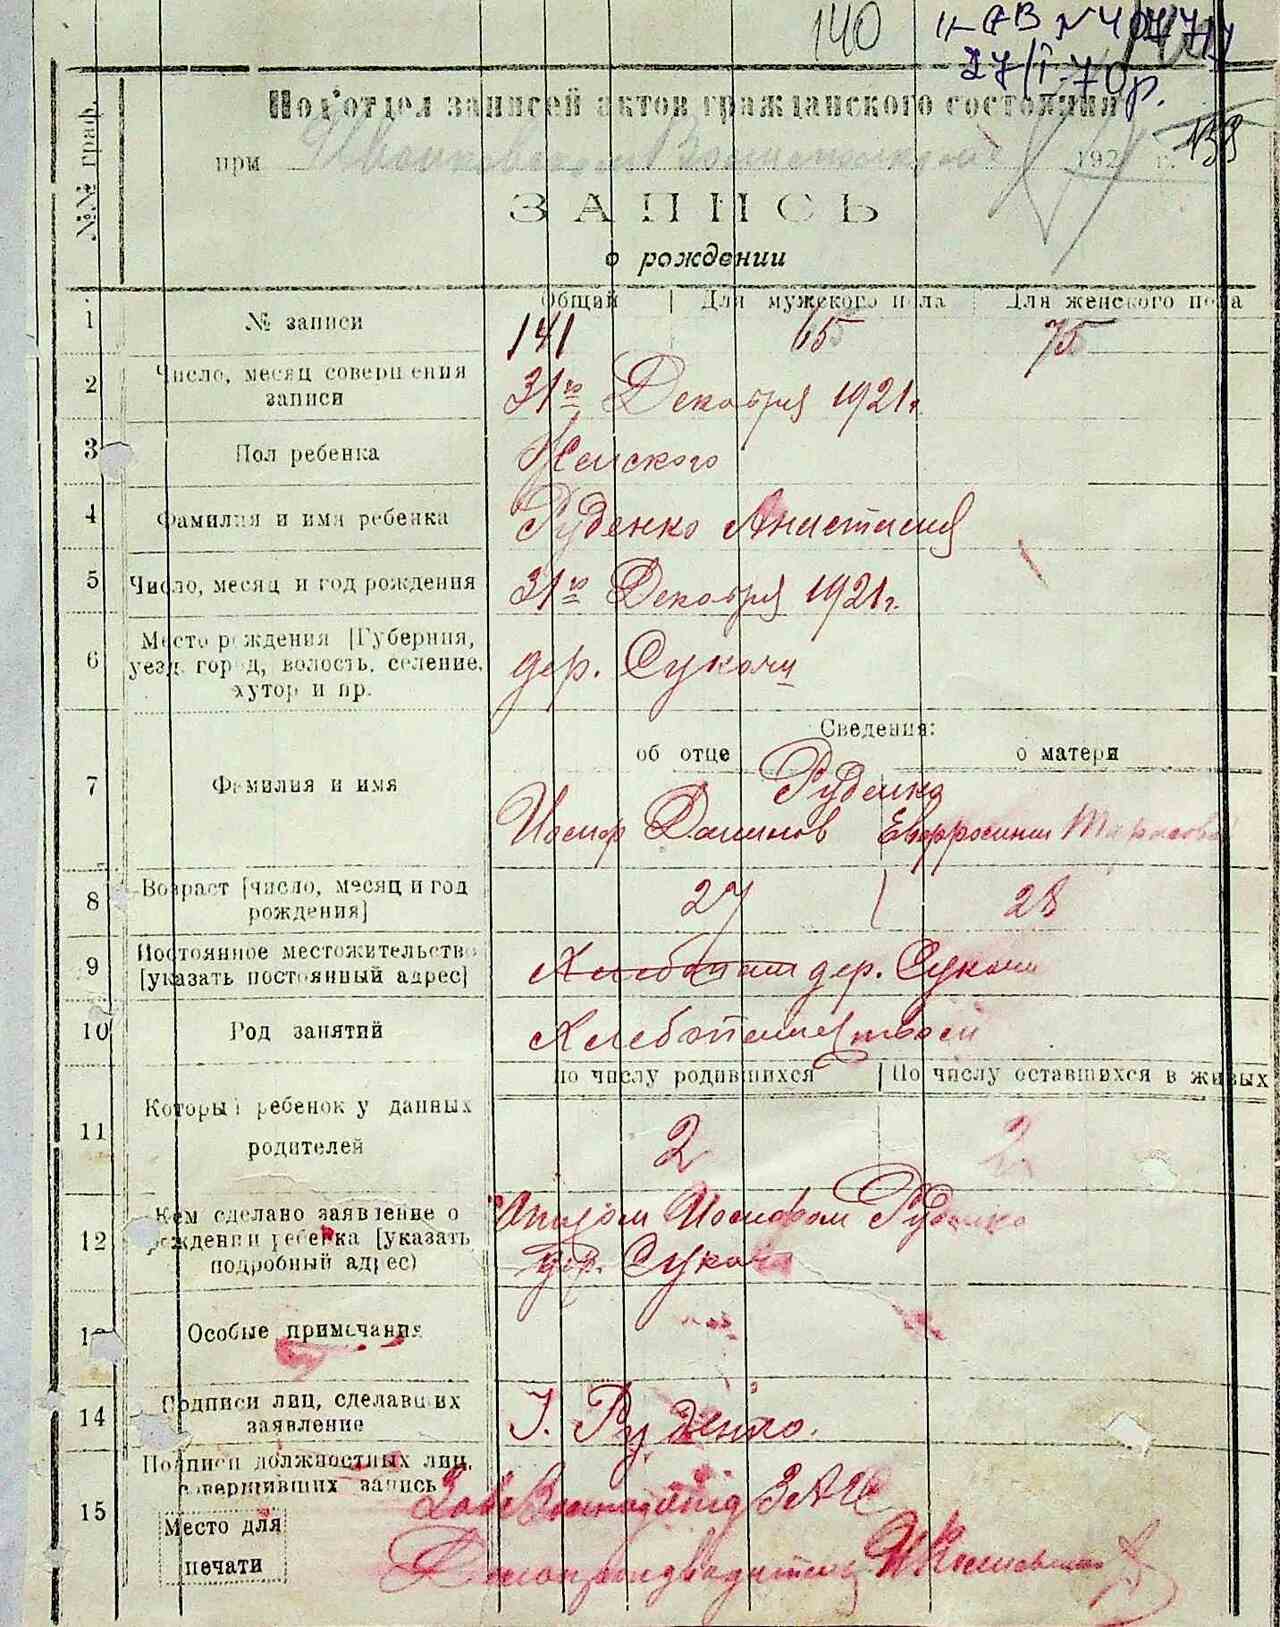 140
27/I-70р.
138
№№ граф.
Под'отдел записей актов гражданского состояния
при 192 г.
ЗАПИСЬ
о рождении
Общий | Для мужского пола | Для женского пола
1 № записи 141 65 75
2 Число, месяц совершения записи 31го Декабря 1921г.
3 Пол ребенка Женского
4 Фамилия и имя ребенка Руденко Анастасия
5 Число, месяц и год рождения 31го Декабря 1921г.
6 Место рождения [Губерния,
уезд, город, волость, селение, дер. Сукачи
хутор и пр.
Сведения:
об отце о матери
7 Фамилия и имя Руденко
Иосиф Евфросиния Тарасова
8 Возраст [число, месяц и год
рождения] 27 28
9 Постоянное местожительство
[указать постоянный адрес] дер. Сукачи
10 Род занятий
По числу родившихся | По числу оставшихся в живых
11 Который ребенок у данных
родителей 2 2
12 Кем сделано заявление о Отцом Иосифом Руденко
рождении ребенка [указать дер. Сукачи
подробный адрес)
13 Особые примечания
14 Подписи лиц, сделавших
заявление І. Руденко.
15 Подписи должностных лиц,
совершивших запись
Место для
печати Делопроизводитель